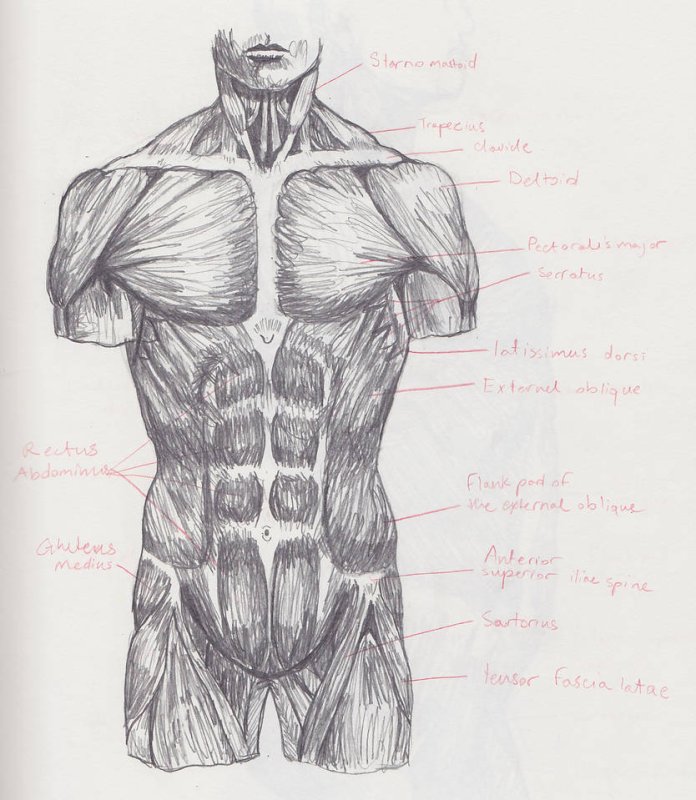 Sterno mastoid
Trapezius
clavicle
Deltoid
Pectoralis major
Serratus
latissimus dorsi
External oblique
Rectus
Abdominus
Flank pad of
the external oblique
Gluteus
medius
Anterior
superior iliac spine
Sartorius
tensor fascia latae